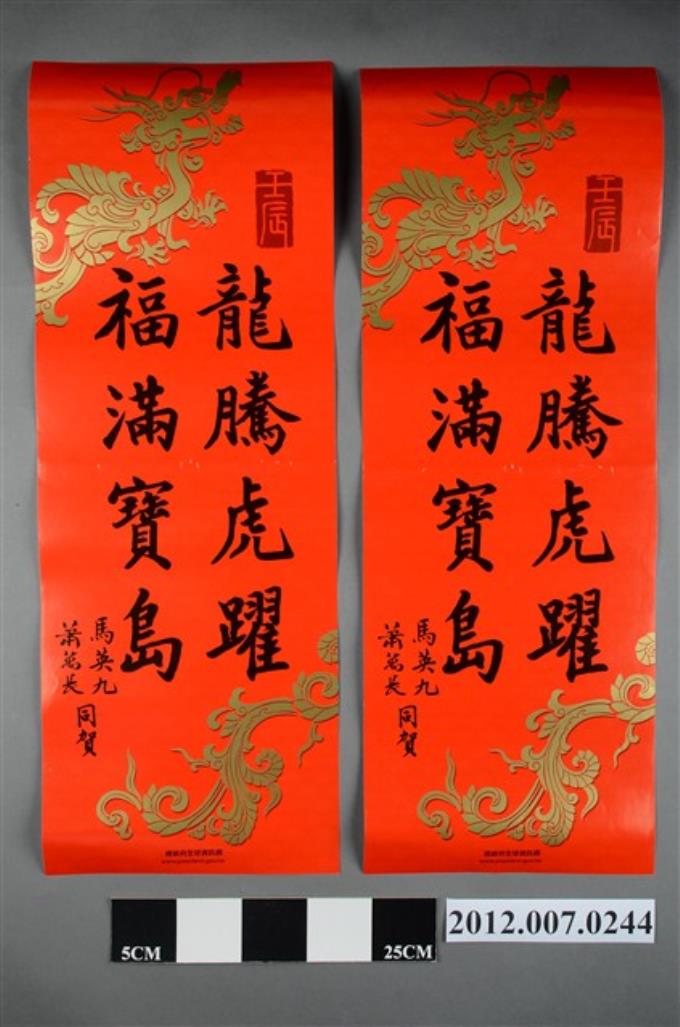 壬辰
龍騰虎躍
福滿寶島
馬英九
蕭萬長
同賀
總統府全球資訊網
www.president.gov.tw
壬辰
龍騰虎躍
福滿寶島
馬英九
蕭萬長
同賀
總統府全球資訊網
www.president.gov.tw
5CM
25CM
2012.007.0244